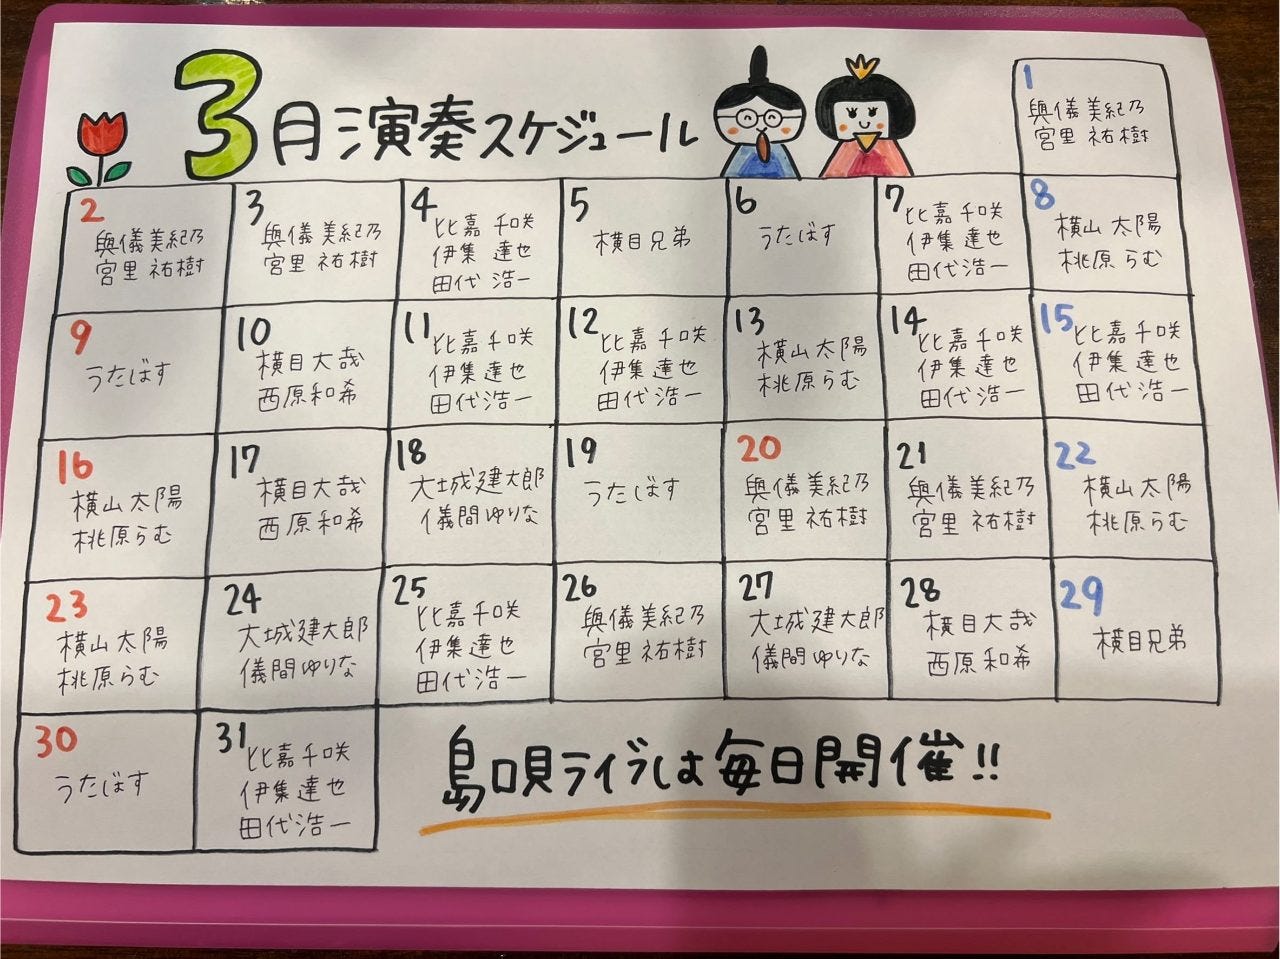 3月演奏スケジュール
1
與儀 美紀乃
宮里 祐樹
2
與儀 美紀乃
宮里 祐樹
3
與儀 美紀乃
宮里 祐樹
4
比嘉 千咲
伊集 達也
田代 浩一
5
横目兄弟
6
うたばす
7
比嘉 千咲
伊集 達也
田代 浩一
8
横山 太陽
桃原 らむ
9
うたばす
10
横目大哉
西原和希
11
比嘉 千咲
伊集 達也
田代 浩一
12
比嘉 千咲
伊集 達也
田代 浩一
13
横山 太陽
桃原らむ
14
比嘉 千咲
伊集 達也
田代 浩一
15
比嘉 千咲
伊集 達也
田代 浩一
16
横山 太陽
桃原らむ
17
横目大哉
西原和希
18
大城建太郎
儀間ゆりな
19
うたばす
20
與儀 美紀乃
宮里 祐樹
21
與儀 美紀乃
宮里 祐樹
22
横山 太陽
桃原らむ
23
横山 太陽
桃原らむ
24
大城建太郎
儀間ゆりな
25
比嘉 千咲
伊集 達也
田代 浩一
26
與儀 美紀乃
宮里 祐樹
27
大城建太郎
儀間ゆりな
28
横目大哉
西原和希
29
横目兄弟
30
うたばす
31
比嘉 千咲
伊集 達也
田代 浩一
島唄ライブは毎日開催!!